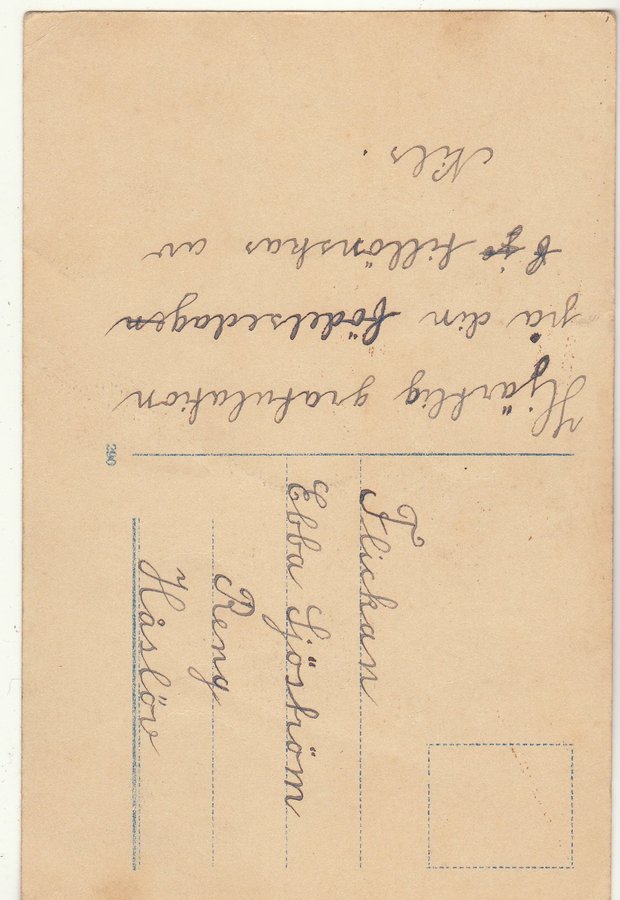 Hjärtlig gratulation
på din födelsedagen
tillönskas av
Nils.
390
Flickan
Ebba Sjöström
Reng
Håslöv